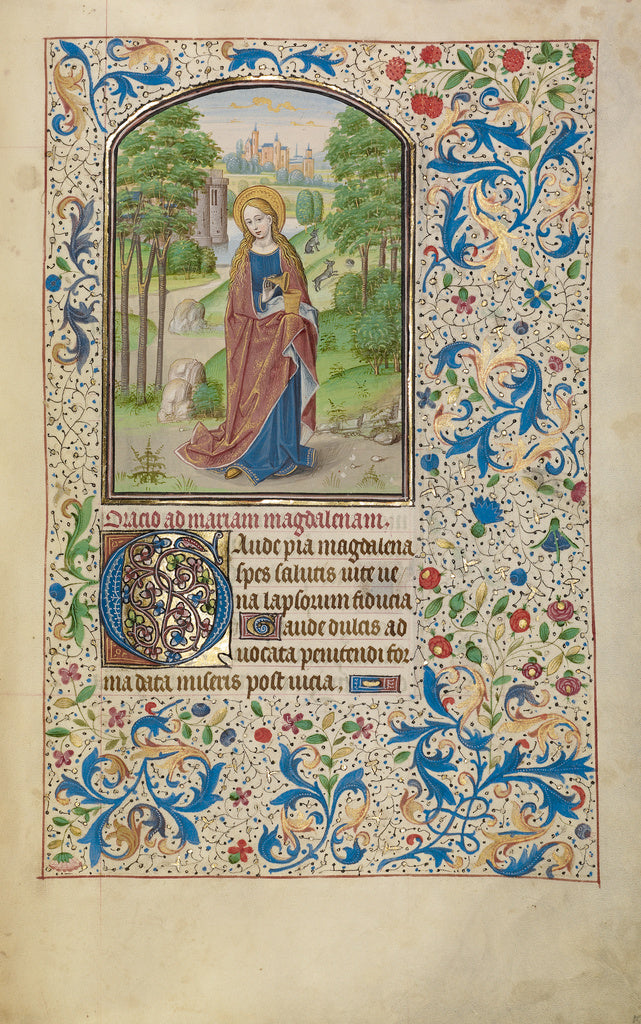 Oracio ad mariam magdalenam.
Gaude pia magdalena
spes salutis uite ue
na lapsorum fiducia
Gaude dulcis ad
uocata penitendi for
ma data miseris post uicia,